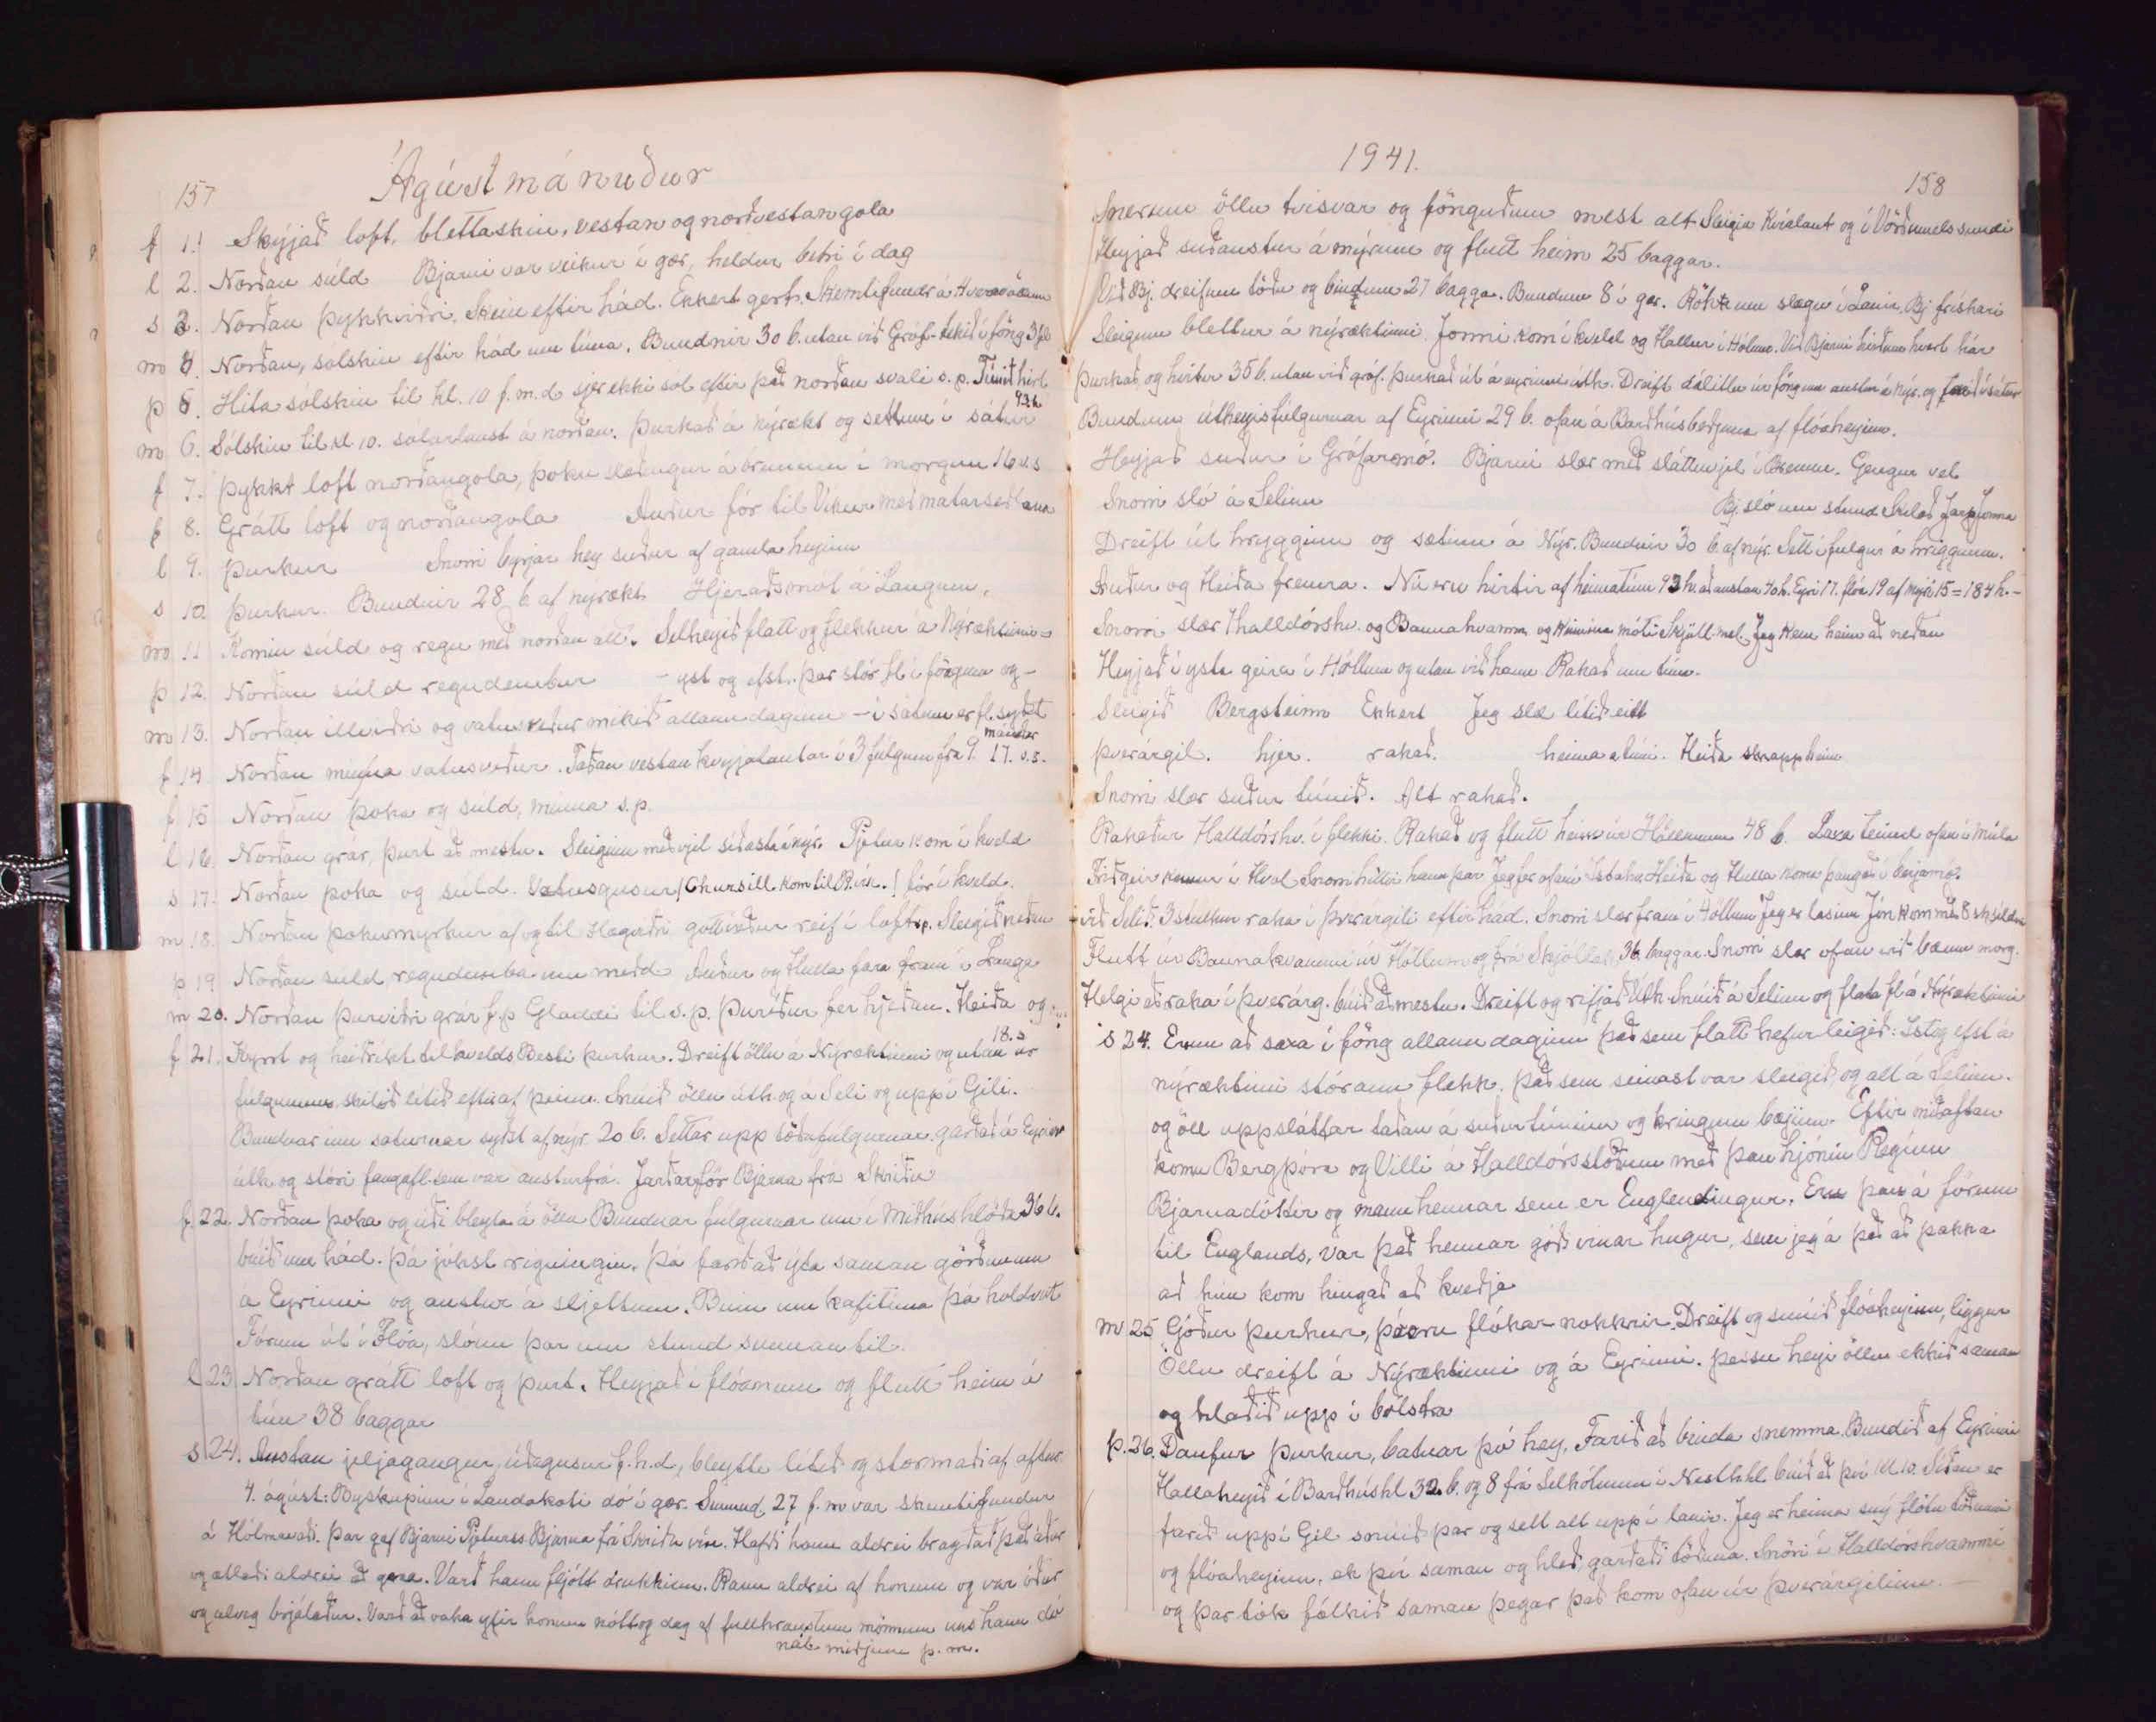 157
Ágúst mánuður
f 1. Skýjað loft, blettaskin, vestan og norðvestangola
l 2. Norðan súld Bjarni var veikur í gær, heldur betri í dag
s 3. Norðan þykkviðri. Skein eftir hád. Ekkert gert. Skemtifundr á
m 4. Norðan, sólskin eftir hád um túna. Bundnir 30 b. utan við Gróf. tekið í föng 3 fl
þ 5. Hita sólskin til kl. 10 f.m.d sjer ekki sól eftir það norðan svali s.p. Túnið hirt
93 h
m 6. Sólskin til kl 10. sólarlaust á norðan. Þurkað á nýrækt og settum í sátur
f 7. Þykkt loft norðangola, þoku slæðingur á brúnum í morgun 16 v.s
f 8. Grátt loft og norðangola Auður fór til Víkur með matarseðlana
l 9. Þurkur Snorri byrjar hey suður af gamla heyinu
s 10. Þurkur. Bundnir 28 b af nýrækt. Hjeraðsmót á Laugum.
m 11 Komin súld og regn með norðan átt. Selheyið flatt og flekkur á Nýræktinni =
þ 12. Norðan súld regndembur - yst og efst. Þar stór fl í föngum og -
m 13. Norðan illviðri og vatnsveður mikið allann daginn - í sátum er fl. syðst
mánudr
f 14 Norðan minna vatnsveður. Taðan vestan kvyjalautar í 3 fúlgum frá 9. 17. v.s.
f 15 Norðan þoka og súld, minna s.p.
l 16. Norðan grár, þurt að mestu. Sleginn með vjel síðast á nýr. Pjetur kom í kveld
s 17. Norðan þoka og súld. Vatnsgusur (Chursill kom til R.vík.) fór í kveld.
m 18. Norðan þokumyrkur af og til Hægviðri gott veður reif í loft s.p. Slegið neðan
þ 19 Norðan súld regndemba um miðd Auður og Hulla fara fram í Lauga
m 20. Norðan þurviðri grár f.p Gladdi til s.p. Þuríður fer hjeðan. Heiða og
18. s
f 21. Kyrt og heiðríkt til kvelds Besti þurkur. Dreift öllu á Nýræktinni og utan úr
fúlgunum, skilið lítið eftir af þeim. Snúið öllu úth. og á Seli og upp í Gili.
Bundnar inn sáturnar syðst af nýr. 20 b. Settar upp töðufúlgurnar, garðað á Eyrinni
úth og stóri fangafl. sem var austurfrá. Jarðarför Bjarna frá Skriðu
f. 22. Norðan þoka og úði bleyta á öllu Bundnar fúlgurnar inn í Miðhúshlöðu 36 b.
búið um hád. Þá jókst rigningin. Þá farið að ýta saman görðunum
á Eyrinni og austur á sljettum. Búin um kafitíma þá holdvot
Fórum út í Flóa, slóum þar um stund sunnan til.
l 23 Norðan grátt loft og þurt. Heyjað í flóanum og flutt heim á
tún 38 baggar
s 24. Austan jeljagangur, úðagusur f.h.d, bleytti lítið og stormaði af aftur
4. ágúst: Byskupinn í Landakoti dó í gær. Sunnud. 27 f. m var skemtifundur
á Hólmavaði. Þar gaf Bjarni Pjeturss Bjarna frá Skriðu vín. Hafði hann aldrei bragðað það áður
og ætlaði aldrei að gera. Varð hann fljótt drukkinn. Rann aldrei af honum og var óður
og alveg brjálaður. Varð að vaka yfir honum nótt og dag af fullhraustum mönnum uns hann dó
nál. miðjum þ. m.
1941.
158
Snerum öllu tvisvar og fönguðum mest alt Slegin Kvíalaut og í Vörðumelssundi
Heyjað suðaustur á mýrum og flutt heim 25 baggar.
Við Bj. dreifum töðu og bindum 27 bagga. Bundum 8 í gær. Rökuðum slægu í Lanir. Bj friskari
Sleginn blettur á nýræktinni. Jonni kom í kveld og Hallur í Hólum. Við Bjarni hirðum hvert hár
Þurkað og hirtir 35 b. utan við gróf. Þurkað út á eyrinni úth. Dreift dálitlu úr föngum austur á nýr. og farið í sátur
Bundum útheyisfúlgurnar af Eyrinni 29 b. ofan á Barðhúsbeðjuna af flóaheyinu.
Heyjað suður í Grófarmó. Bjarni slær með sláttuvjel í Brennu. Gengur vel
Snorri sló á Selinu Bj. sló um stund
Dreift út hryggjum og sætum á Nýr. Bundnir 30 b. af nýr. Sett í fúlgur á hryggnum.
Auður og Heiða fremra. Nú eru hirtir af heimatúni 93 h. að austan 40 h. Eyri 17. flóa 19 af mýri 15 = 184 h. -
Snorri slær Halldórshv. og Baunahvamm og Kinnina móti Skjól mel. Jeg Kem heim að neðan
Heyjað í ysta geira í Höllum og utan við hann Rakað um túni.
Slegið Bergsteinn Ekkert Jeg slæ lítið eitt
Þverárgil. hjer. rakað. heima á túni. Heiða skrapp heim
Snorri slær suður túnið. Alt rakað.
Rakaður Halldórshv. í flekki. Rakað og flutt heim úr Höllunum 48 b. Laxa teind ofan í Múla
Friðgeir kemur í Hvol Snorri hittir hann þar Jeg fer ofan í Ystahv. Heiða og Hulla koma þangað í berjamó.
við Selið. 3 stúlkur raka í Þverárgili eftir hád. Snorri slær fram í Höllum Jeg er lasinn Jón kom með 8 sk síldar
Flutt úr Baunahvammi úr Höllum og frá Skjólmel. 36 baggar. Snorri slær ofan við bæinn morg.
Helgi að raka í Þverárg. búið að mestu. Dreift og rifjað Úth. Snúið á Selinu og flata fl á Nýræktinni
s 24. Erum að saxa í föng allann daginn það sem flatt hefur leigið: Yst og efst á
nýræktinni stórann flekk. Það sem seinast var slegið og alt á Selinu.
og öll uppsláttar taðan á suðurtúninu og kringum bæjinn. Eftir miðaftan
komu Bergþóra og Villi á Halldórsstöðum með þau hjónin Regínu
Bjarnadóttir og mann hennar sem er Englendingur. Eru þau á förum
til Englands, var það hennar góði vinar hugur, sem jeg á það að þakka
að hún kom hingað að kveðja
m 25 Góður þurkur, þó eru flókar nokkrir. Dreift og snúið flóaheyinu, liggur
Öllu dreift á Nýræktinni og á Eyrinni. Þessu heyi öllu ekkið saman
og hlaðið upp í bólstra
þ. 26. Daufur þurkur, batnar þó hey. Farið að binda snemma. Bundið af Eyrinni
Hallaheyið í Barðhúshl 32. b. og 8 frá Selhólunum í Nesthhl búið að því kl 10. Síðan er
farið upp í Gil snúið þar og sett alt upp í lanir. Jeg er heima sný flötu töðunni
og flóaheyinu, ek því saman og hleð, garðaði töðuna. Snöri í Halldórshvammi
og þar tók fólkið saman þegar það kom ofan úr Þverárgilinu.